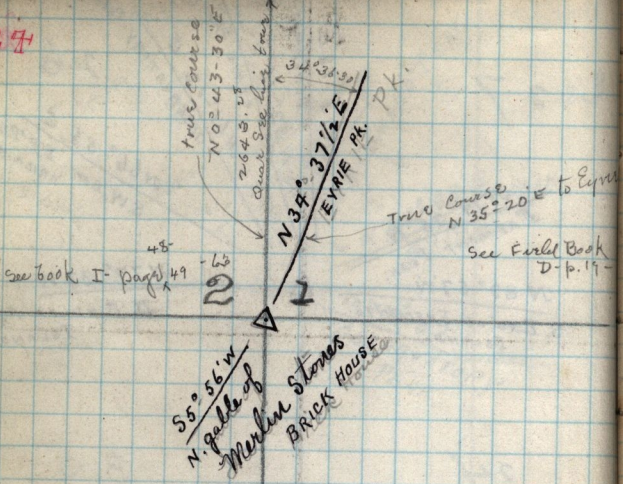 True Course
N 0°-43-30" E
2643.25
Quar Sec line
34°-36-30
N 34° 37½ E
EYRIE PK.
PK.
True Course
N 35°-20' E to Eyrie
See Field Book
D-p. 19-
See book I- page 49
48-
2
1
S 5° 56' W
N. gable of
Merlin Stones
BRICK HOUSE